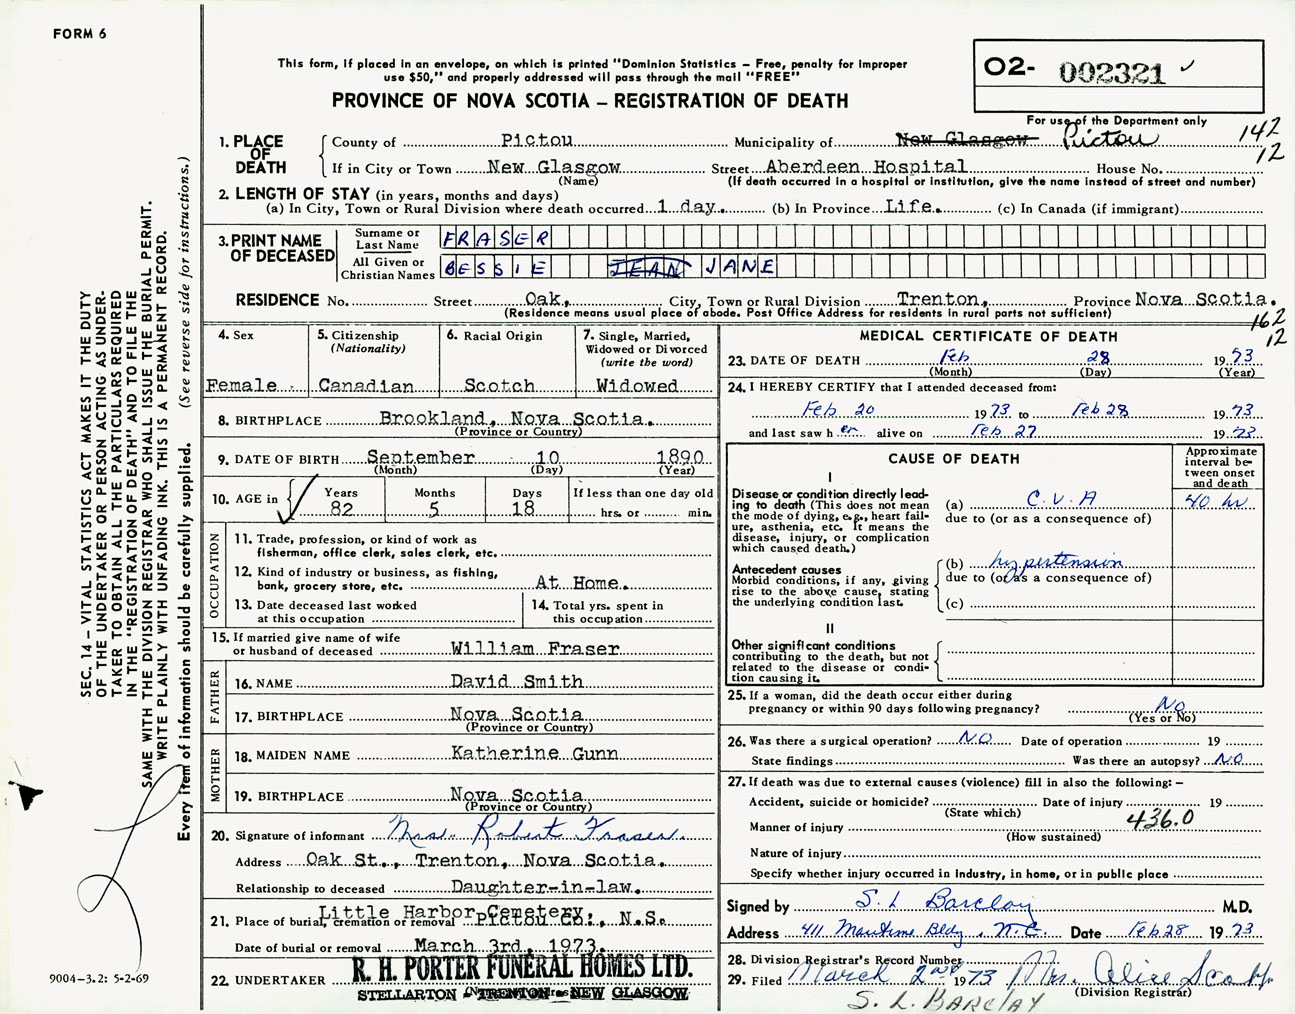 FORM 6
This form, if placed in an envelope, on which is printed "Dominion Statistics – Free, penalty for improper
use $50," and properly addressed will pass through the mail "FREE"
PROVINCE OF NOVA SCOTIA – REGISTRATION OF DEATH
02- 002321
For use of the Department only
142
12
1. PLACE OF DEATH
County of Pictou Municipality of New Glasgow Pictou
If in City or Town New Glasgow Street Aberdeen Hospital House No.
(Name) (If death occurred in a hospital or institution, give the name instead of street and number)
2. LENGTH OF STAY (in years, months and days)
(a) In City, Town or Rural Division where death occurred 1 day. (b) In Province Life. (c) In Canada (if immigrant)
3. PRINT NAME OF DECEASED
Surname or Last Name FRASER
All Given or Christian Names BESSIE JEAN JANE
RESIDENCE No. Street Oak, City, Town or Rural Division Trenton, Province Nova Scotia.
(Residence means usual place of abode. Post Office Address for residents in rural parts not sufficient)
162
12
4. Sex Female
5. Citizenship (Nationality) Canadian
6. Racial Origin Scotch
7. Single, Married, Widowed or Divorced (write the word) Widowed
8. BIRTHPLACE Brookland, Nova Scotia.
(Province or Country)
9. DATE OF BIRTH September 10 1890
(Month) (Day) (Year)
10. AGE in Years 82 Months 5 Days 18 If less than one day old hrs. or min.
OCCUPATION
11. Trade, profession, or kind of work as
fisherman, office clerk, sales clerk, etc.
12. Kind of industry or business, as fishing,
bank, grocery store, etc. At Home.
13. Date deceased last worked
at this occupation
14. Total yrs. spent in
this occupation
15. If married give name of wife
or husband of deceased William Fraser
FATHER
16. NAME David Smith
17. BIRTHPLACE Nova Scotia
(Province or Country)
MOTHER
18. MAIDEN NAME Katherine Gunn
19. BIRTHPLACE Nova Scotia
(Province or Country)
20. Signature of informant Mrs. Robert Fraser.
Address Oak St., Trenton, Nova Scotia.
Relationship to deceased Daughter-in-law.
21. Place of burial, cremation or removal Little Harbor Cemetery, Pictou Co., N.S.
Date of burial or removal March 3rd, 1973.
22. UNDERTAKER R. H. PORTER FUNERAL HOMES LTD.
STELLARTON TRENTON NEW GLASGOW
MEDICAL CERTIFICATE OF DEATH
23. DATE OF DEATH Feb 28 1973
(Month) (Day) (Year)
24. I HEREBY CERTIFY that I attended deceased from:
Feb 20 1973 to Feb 28 1973
and last saw her alive on Feb 27 1973
CAUSE OF DEATH
Approximate interval between onset and death
I
Disease or condition directly lead-
ing to death (This does not mean
the mode of dying, e.g., heart fail-
ure, asthenia, etc. It means the
disease, injury, or complication
which caused death.)
(a) C.V.A 40 hr
due to (or as a consequence of)
Antecedent causes
Morbid conditions, if any, giving
rise to the above cause, stating
the underlying condition last.
(b) hypertension
due to (or as a consequence of)
(c)
II
Other significant conditions
contributing to the death, but not
related to the disease or condi-
tion causing it.
25. If a woman, did the death occur either during
pregnancy or within 90 days following pregnancy? No
(Yes or No)
26. Was there a surgical operation? NO Date of operation 19
State findings Was there an autopsy? NO
27. If death was due to external causes (violence) fill in also the following: –
Accident, suicide or homicide? Date of injury 19
(State which)
436.0
Manner of injury
(How sustained)
Nature of injury
Specify whether injury occurred in industry, in home, or in public place
Signed by S. L Barclay M.D.
Address 411 Maritime Bldg, N.G. Date Feb 28 1973
28. Division Registrar's Record Number
29. Filed March 2nd 1973 Mrs. Alice
(Division Registrar)
S. L. BARCLAY
SEC. 14 – VITAL STATISTICS ACT MAKES IT THE DUTY
OF THE UNDERTAKER OR PERSON ACTING AS UNDER-
TAKER TO OBTAIN ALL THE PARTICULARS REQUIRED
IN THE "REGISTRATION OF DEATH" AND TO FILE THE
SAME WITH THE DIVISION REGISTRAR WHO SHALL ISSUE THE BURIAL PERMIT.
WRITE PLAINLY WITH UNFADING INK. THIS IS A PERMANENT RECORD.
Every item of information should be carefully supplied. (See reverse side for instructions.)
9004-3.2: 5-2-69